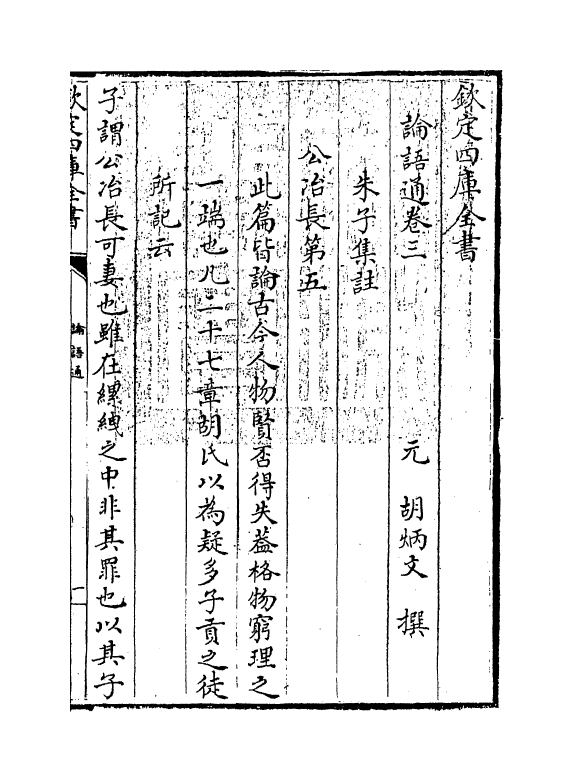 欽定四庫全書
論語通卷三
元 胡炳文 撰
朱子集註
公冶長第五
此篇皆論古今人物賢否得失蓋格物窮理之
一端也凡二十七章胡氏以為疑多子貢之徒
所記云
子謂公冶長可妻也雖在縲絏之中非其罪也以其子
欽定四庫全書
論語通
一